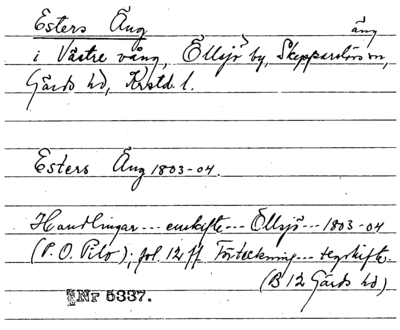 Esters Äng äng
i Västre vång, Öllsjö by, Skepparslövs sn,
Gärds hd, Krstd. l.
Esters Äng 1803-04.
Handlingar --- enskifte --- Öllsjö --- 1803-04
(P. O. Pilo); fol. 12 ff Förteckning --- tegskifte.
(B 12 Gärds hd)
Nr 5337.